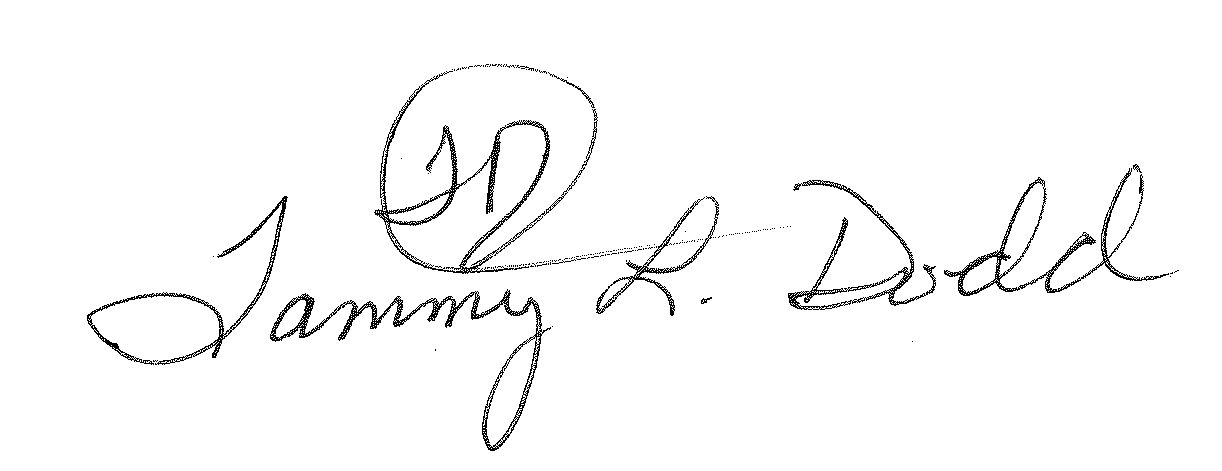 TD
Tammy L. Dodd